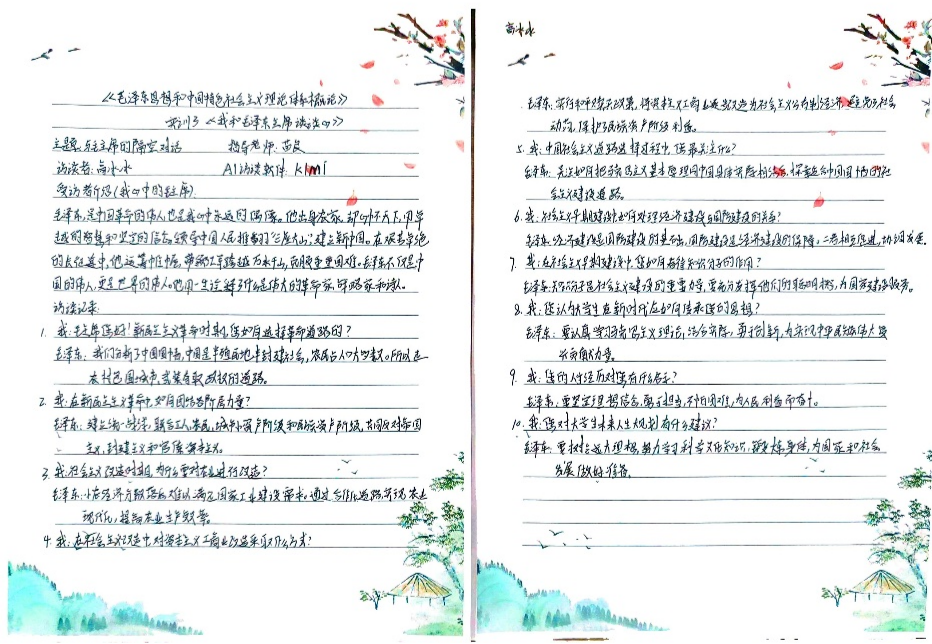 《毛泽东思想和中国特色社会主义理论体系概论》
实训3 《我和毛泽东主席谈谈心》
主题: 与主席的隔空对话 指导老师: 苗良
访谈者: 高小水 AI访谈软件: KIMI
受访者介绍(我心中的主席)
毛泽东,是中国革命的伟人,也是我心中永远的偶像。他出身农家,却心怀天下,用卓
越的智慧和坚定的信念,领导中国人民推翻了“三座大山”,建立新中国。在艰苦卓绝
的长征途中,他运筹帷幄,带领红军跨越万水千山,克服重重困难。毛泽东不仅是中
国的伟人,更是世界的伟人。他用一生诠释了什么是伟大的革命家、军事家和诗人。
访谈记录:
1. 我:主席您好!新民主主义革命时期,您如何选择革命道路的?
毛泽东: 我们分析了中国国情,中国是半殖民地半封建社会,农民占人口大多数。所以走
农村包围城市,武装夺取政权的道路。
2. 我:在新民主主义革命中,如何团结各阶层力量?
毛泽东: 建立统一战线,联合工人、农民、城市小资产阶级和民族资产阶级,共同反对帝国
主义、封建主义和官僚资本主义。
3. 我:社会主义改造时期,为什么要对农业进行改造?
毛泽东:小农经济分散落后,难以满足国家工业建设需求。通过合作化道路,实现农业
现代化,提高农业生产效率。
4. 我:在社会主义改造中,对资本主义工商业改造采取什么方式?
高小水
毛泽东:实行和平赎买政策,将资本主义工商业逐步改造为社会主义公有制经济,避免了社会
动荡,保护了民族资产阶级利益。
5. 我:中国社会主义道路选择过程中,您最关注什么?
毛泽东: 关注如何把马克思主义基本原理同中国具体实际相结合,探索适合中国国情的社
会主义建设道路。
6. 我:社会主义早期建设中,如何处理经济建设与国防建设的关系?
毛泽东: 经济建设是国防建设的基础,国防建设是经济建设的保障,二者相互促进,协调发展。
7. 我:在社会主义早期建设中,您如何看待知识分子的作用?
毛泽东:知识分子是社会主义建设的重要力量,要充分发挥他们的聪明才智,为国家建设服务。
8. 我:您认为大学生在新时代应如何传承您的思想?
毛泽东: 要认真学习马克思主义理论,结合实际,勇于创新,为实现中华民族伟大复
兴贡献力量。
9. 我:您的人生经历对学生有什么启示?
毛泽东:要坚定理想信念,勇于担当,不怕困难,为人民利益而奋斗。
10. 我:您对大学生未来人生规划有什么建议?
毛泽东: 要树立远大理想,努力学习科学文化知识,锻炼身体,为国家和社会
发展做好准备。